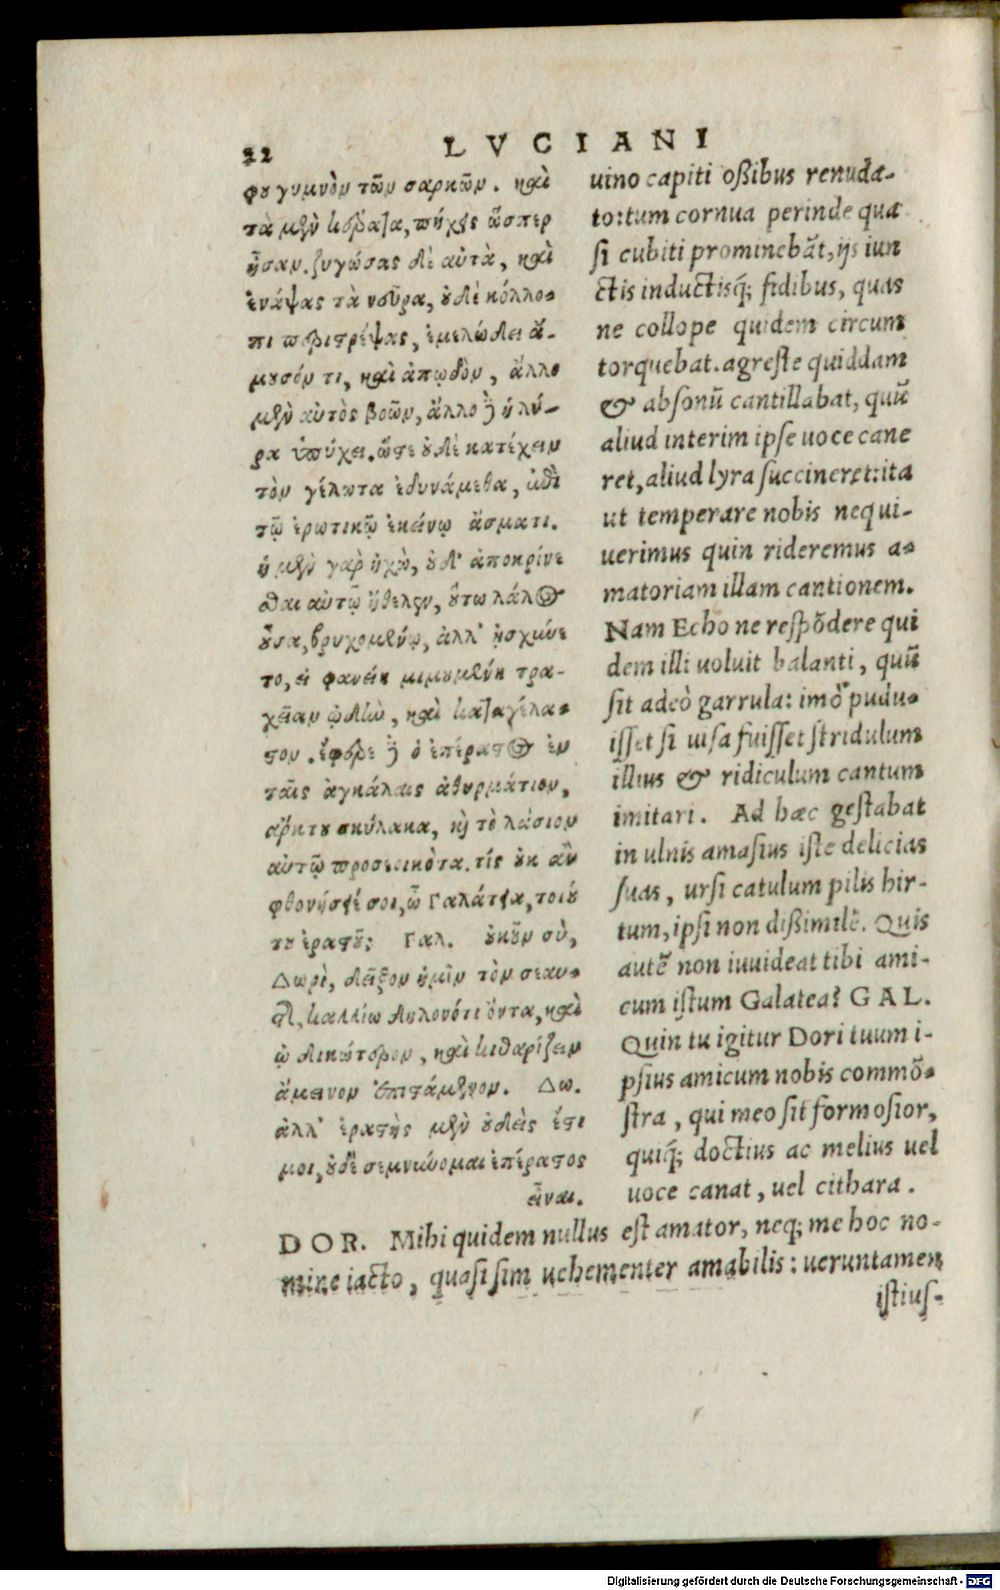 22 LVCIANI
φου γυμνὸν τῶν σαρκῶν. καὶ
τὰ μὲν κέρατα, πήχεις ὥσπερ
ἦσαν. ζυγώσας δὲ αὐτὰ, καὶ
ἐνάψας τὰ νεῦρα, οὐδὲ κόλλο-
πι περιτρέψας, ἐμελώδει ἄ-
μουσόν τι, καὶ ἀπῳδὸν, ἄλλο
μὲν αὐτὸς βοῶν, ἄλλο δὲ ἡ λύ-
ρα ὑπήχει. ὥστε οὐδὲ κατέχειν
τὸν γέλωτα ἐδυνάμεθα, ἐπὶ
τῷ ἐρωτικῷ ἐκείνῳ ἄσματι.
ἡ μὲν γὰρ ἠχὼ, οὐδ' ἀποκρίνε
σθαι αὐτῷ ἤθελεν, οὕτω λάλος
οὖσα, βρυχομένῳ, ἀλλ' ᾐσχύνε
το, εἰ φανείη μιμουμένη τρα-
χεῖαν ᾠδὴν, καὶ καταγέλα-
στον. ἔφερε δὲ ὁ ἐπέραστος ἐν
ταῖς ἀγκάλαις ἀθυρμάτιον,
ἄρκτου σκύλακα, καὶ τὸ λάσιον
αὐτῷ προσεοικότα. τίς οὐκ ἂν
φθονήσειέ σοι, ὦ Γαλάτεια, τοιού
του ἐραστοῦ; Γαλ. οὐκοῦν σὺ,
Δωρὶ, δεῖξον ἡμῖν τὸν σεαυ-
τῆς, καλλίω δηλονότι ὄντα, καὶ
ᾠδικώτερον, καὶ κιθαρίζειν
ἄμεινον ἐπιστάμενον. Δω.
ἀλλ' ἐραστὴς μὲν οὐδεὶς ἔστι
μοι, οὐδὲ σεμνύνομαι ἐπέραστος
εἶναι.
uino capiti oßibus renuda-
to: tum cornua perinde qua
si cubiti prominebãt, ijs iun
ctis inductisq; fidibus, quas
ne collope quidem circum
torquebat. agreste quiddam
& absonũ cantillabat, quũ
aliud interim ipse uoce cane
ret, aliud lyra succineret: ita
ut temperare nobis nequi-
uerimus quin rideremus a-
matoriam illam cantionem.
Nam Echo ne respõdere qui
dem illi uoluit balanti, quũ
sit adeò garrula: imò pudu-
isset si uisa fuisset stridulum
illius & ridiculum cantum
imitari. Ad hæc gestabat
in ulnis amasius iste delicias
suas, ursi catulum pilis hir-
tum, ipsi non dißimilẽ. Quis
autẽ non inuideat tibi ami-
cum istum Galatea? GAL.
Quin tu igitur Dori tuum i-
psius amicum nobis commõ-
stra, qui meo sit formosior,
quiq; doctius ac melius uel
uoce canat, uel cithara.
DOR. Mihi quidem nullus est amator, neq; me hoc no-
mine iacto, quasi sim uehementer amabilis: ueruntamen
istius-
Digitalisierung gefördert durch die Deutsche Forschungsgemeinschaft - DFG